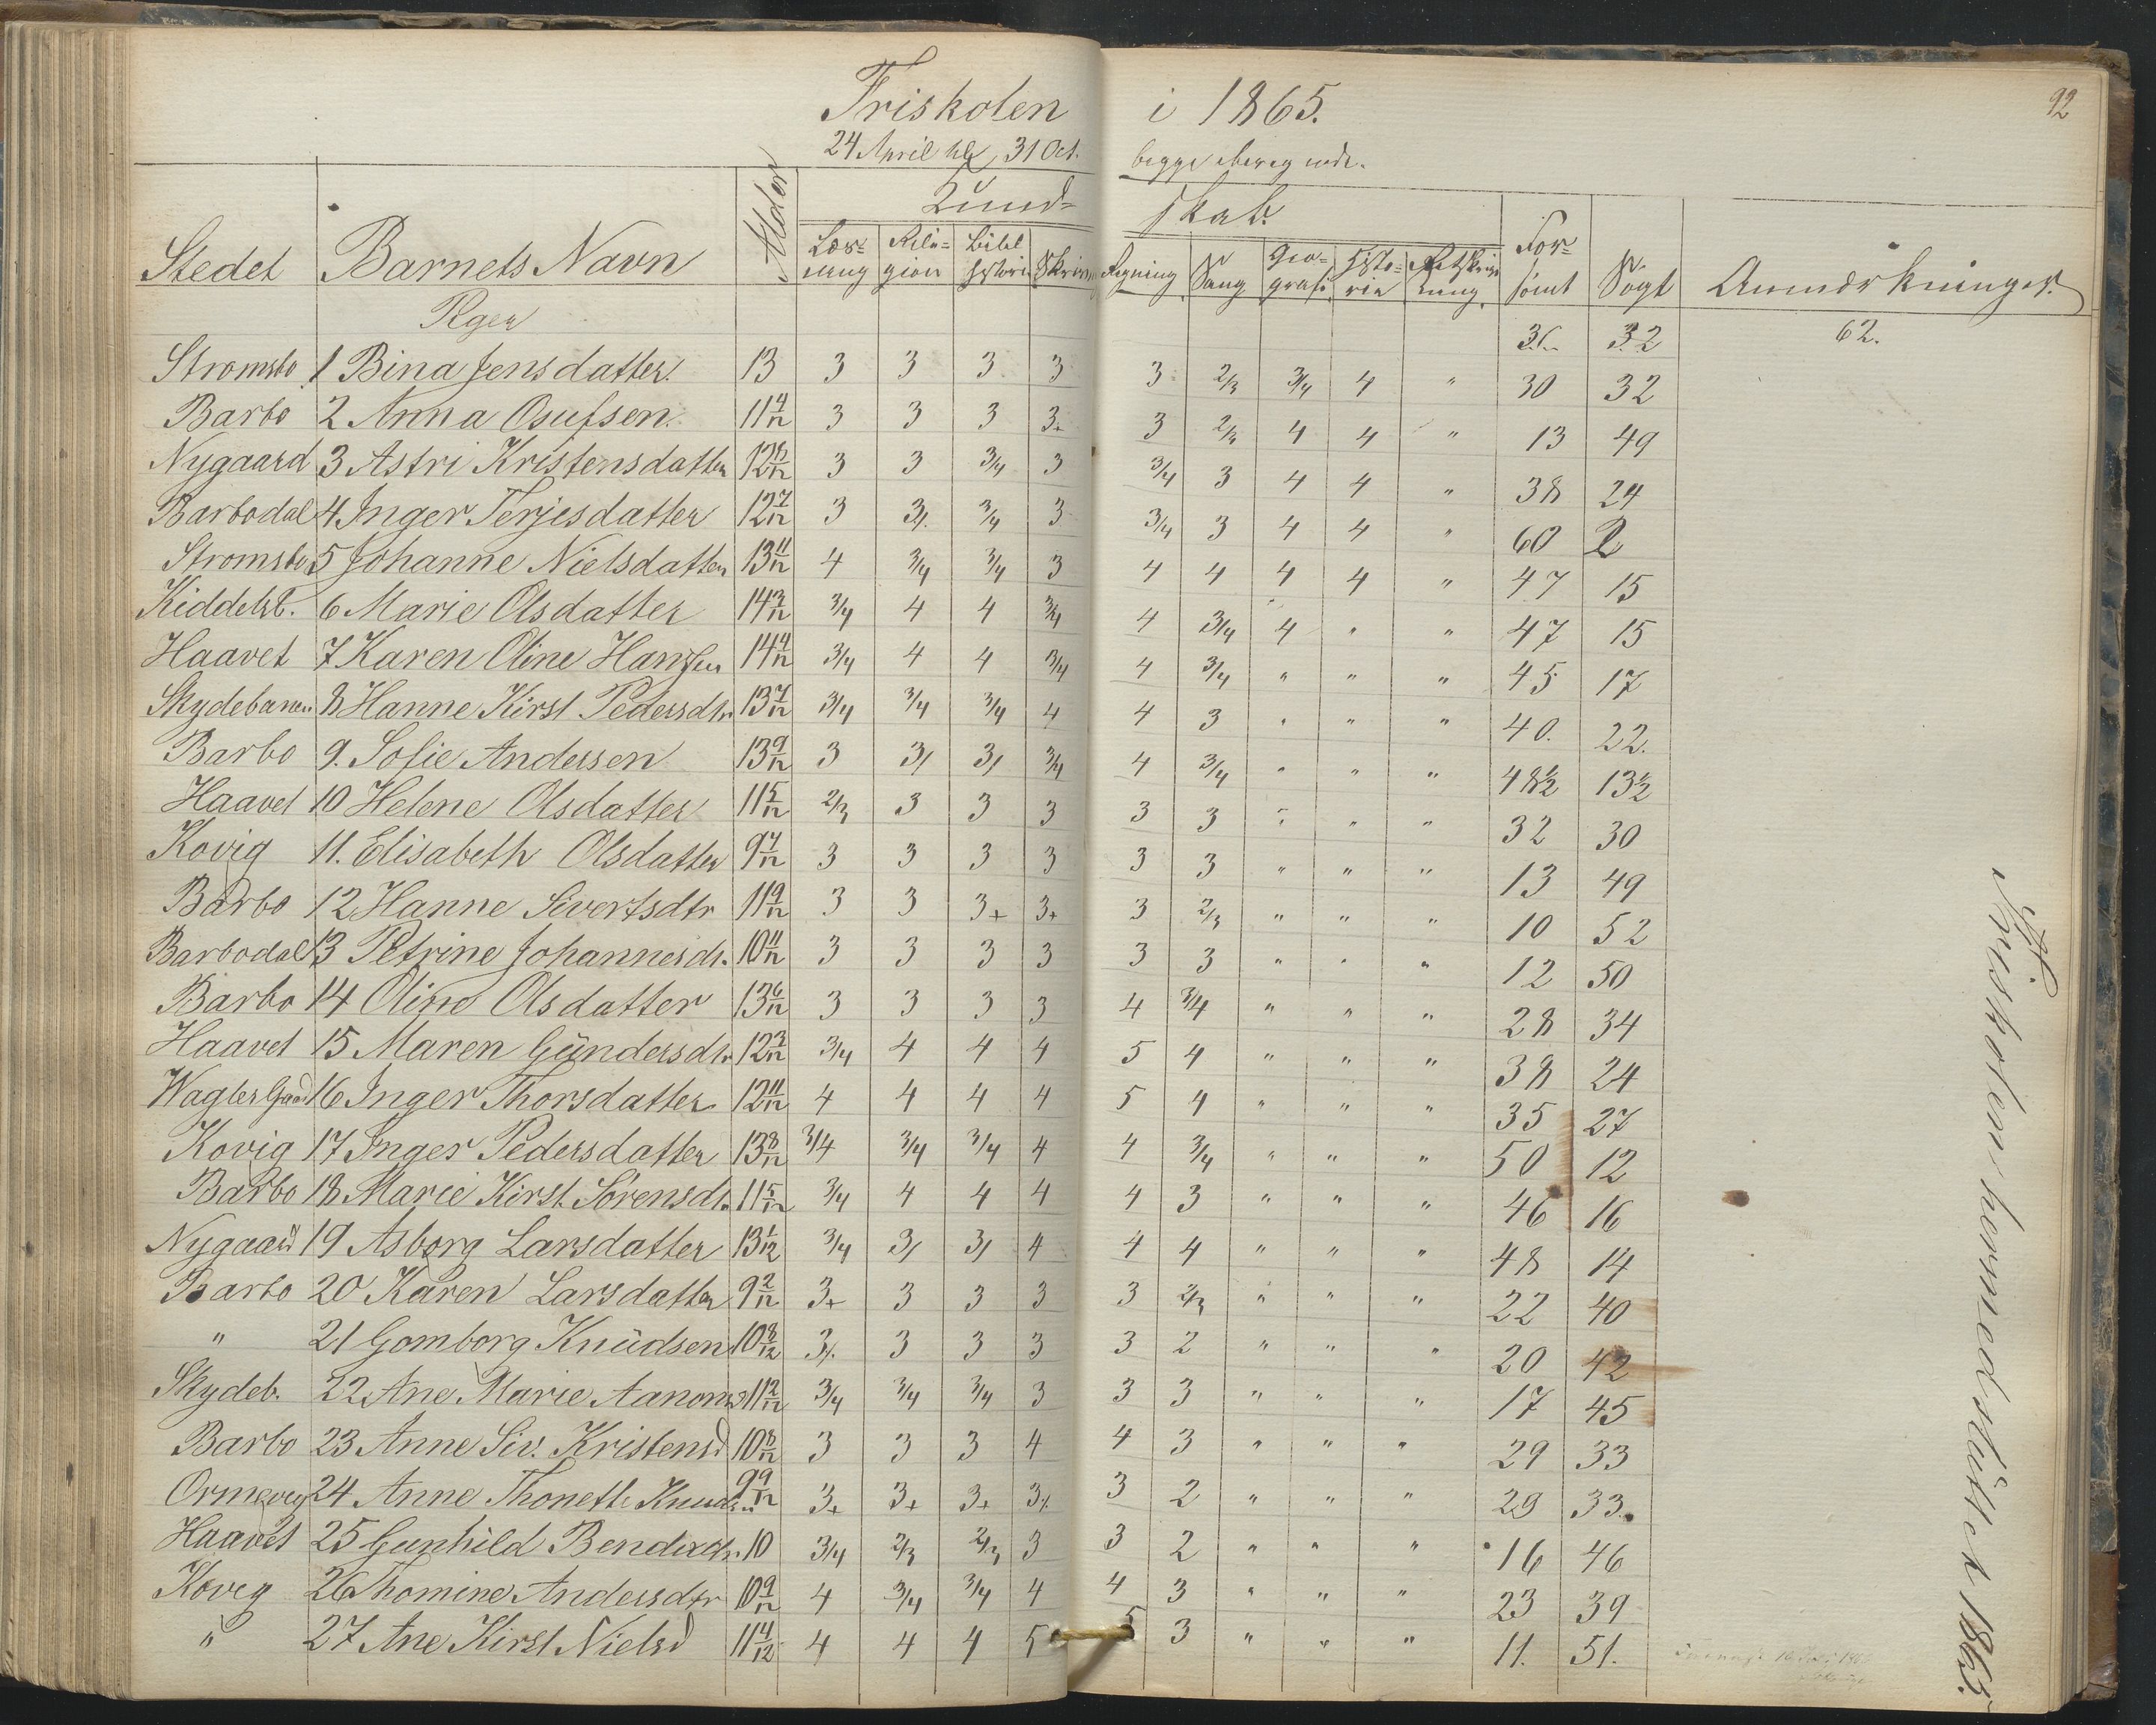 92
Friskolen i 1865.
24 April til 31 Oct. begge iberegnede.
Stedet Barnets Navn Alder Kund= skab. For= sømt Søgt Anmærkninger.
Læs= ning Reli= gion Bibel historie Skrivn Regning Sang Geo= grafi Histo= rie Retskriv ning
Piger 32 62.
Stromsbo 1 Bina Jensdatter. 13 3 3 3 3 3 2/3 3/4 4 " 30 32
Barbo 2 Anna Osufsen. 11 4/12 3 3 3 3+ 3 2/3 4 4 " 13 49
Nygaard 3 Astri Kristensdatter 12 8/12 3 3 3/4 3 3/4 3 4 4 " 38 24
Barbodal 4 Inger Terjesdatter 12 7/12 3 3/. 3/4 3 3/4 3 4 4 " 60 2
Stromsbo 5 Johanne Nielsdatter 13 11/12 4 3/4 3/4 3 4 4 4 4 " 47 15
Kiddelsb. 6 Marie Olsdatter 14 3/12 3/4 4 4 3/4 4 3/4 4 " " 47 15
Haavet 7 Karen Oline Hansen 14 4/12 3/4 4 4 3/4 4 3/4 " " " 45 17
Skydebanen 8 Hanne Kirst Pedersdtr 13 7/12 3/4 3/4 3/4 4 4 3 " " " 40. 22.
Barbo 9. Sofie Andersen 13 9/12 3 3/ 3/ 3/4 4 3/4 " " " 48½ 13½
Haavet 10 Helene Olsdatter 11 5/12 2/3 3 3 3 3 3 " " " 32 30
Kovig 11. Elisabeth Olsdatter 9 7/12 3 3 3 3 3 3 " " " 13 49
Barbo 12 Hanne Sivertsdtr 11 9/12 3 3 3+ 3+ 3 2/3 " " " 10 52
Barbodal 13 Petrine Johannesdr. 10 11/12 3 3 3 3 3 3 " " " 12 50
Barbo 14 Oline Olsdatter 13 6/12 3 3 3 3 4 3/4 " " " 28 34
Haavet 15 Maren Gündersdtr 12 3/12 3/4 4 4 4 5 4 " " " 38 24
Wagles Gaard 16 Inger Thorsdatter 12 11/12 4 4 4 4 5 4 " " " 35 27
Kovig 17 Inger Pedersdatter 13 8/12 3/4 3/4 3/4 4 4 3/4 " " " 50 12
Barbo 18 Marie Kirst. Sörensdr. 11 5/12 3/4 4 4 4 4 3 " " " 46 16
Nygaard 19 Asborg Larsdatter 13 1/12 3/4 3/ 3/ 4 4 4 " " " 48 14
Barbo 20 Karen Larsdatter 9 2/12 3+ 3 3 3 3 2/3 " " " 22 40
" 21 Gomborg Knüdsen 10 8/12 3/. 3 3 3 3 2 " " " 20 42
Skydeb. 22 Ane Marie Aanons 11 2/12 3/4 3/4 3/4 3 3 3 " " " 17 45
Barbo 23 Anne Siv. Kristensd 10 8/12 3 3 3 4 4 3 " " " 29 33
Ormevig 24 Anne Thonette Knudsen 9 9/12 3+ 3+ 3+ 3/. 3 2 " " " 29 33.
Haavet 25 Gunhild Bendixdr. 10 3/4 2/3 2/3 3 3 2 " " " 16 46
Koveg 26 Thomine Andersdtr 10 9/12 4 3/4 3/4 4 4 3 " " " 23 39
" 27 Ane Kirst Nielsd 11 4/12 4 4 4 5 5 3 " " " 11. 51.
Friskolen hermed sluttet 1865.